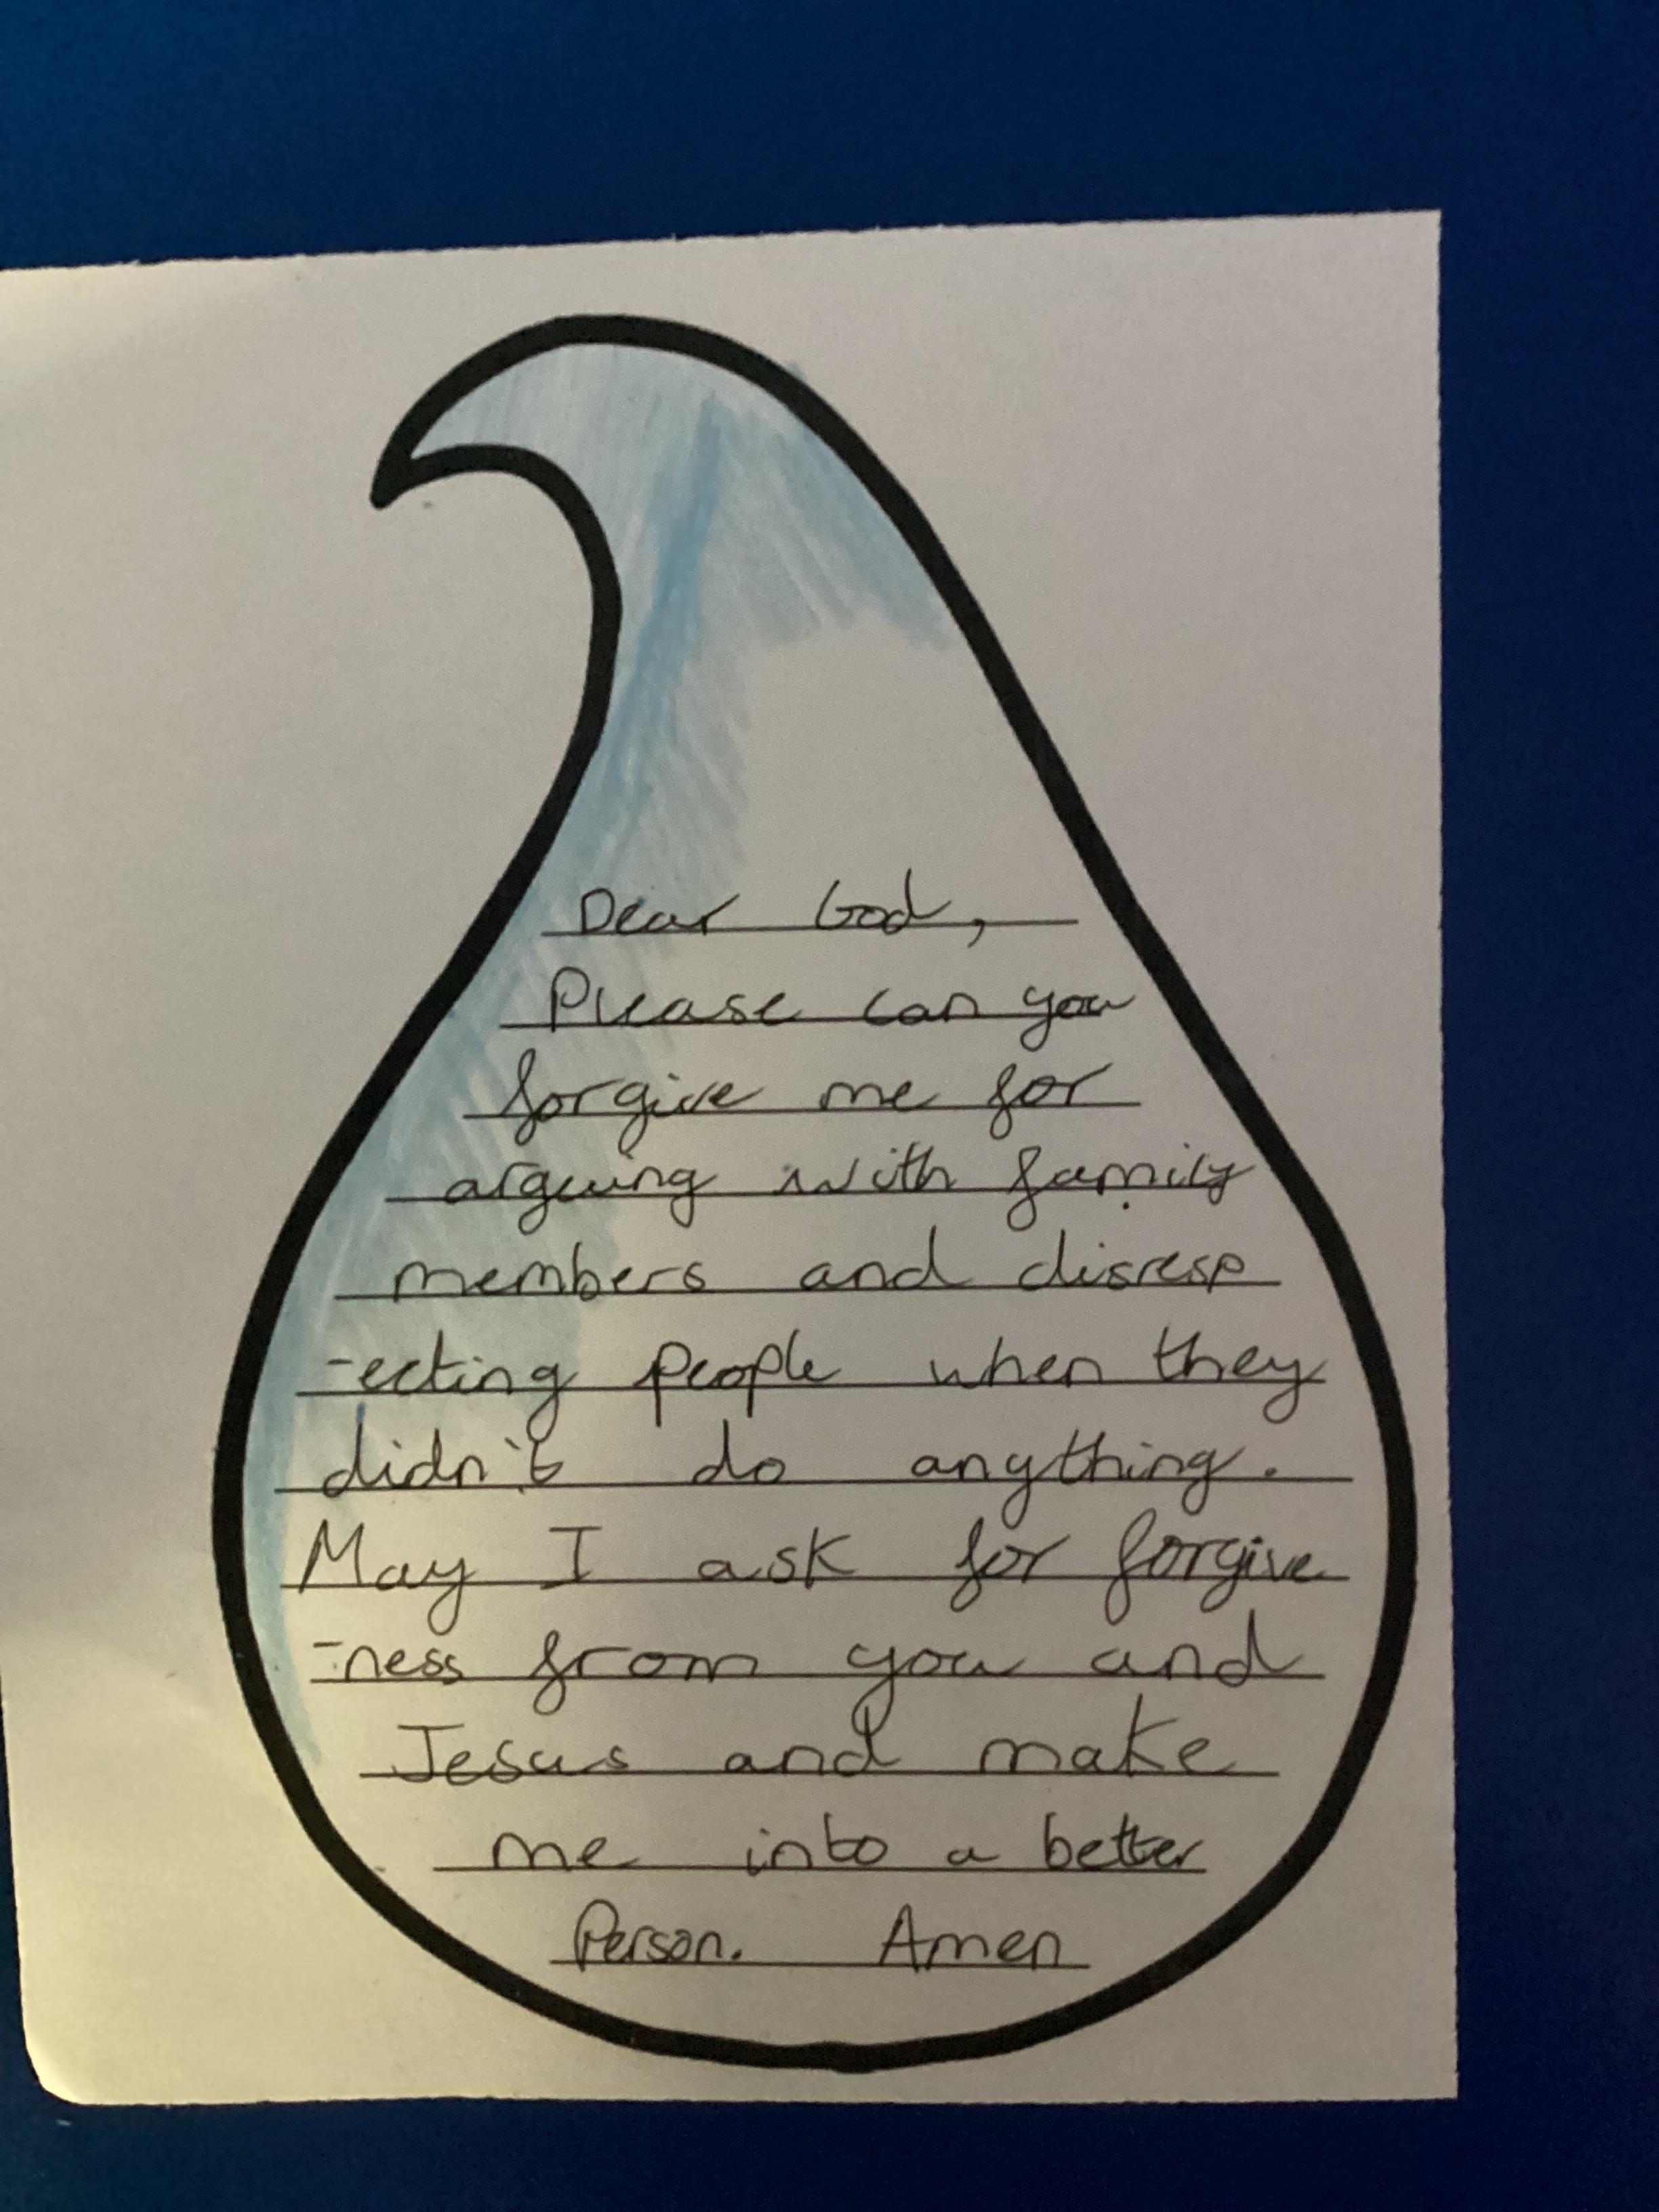 Dear God,
Please can you
forgive me for
arguing with family
members and disresp
-ecting people when they
didn't do anything.
May I ask for forgive
-ness from you and
Jesus and make
me into a better
Person. Amen